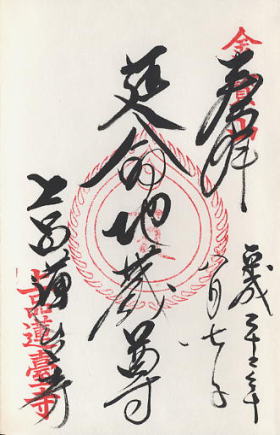 金寶山
奉拝
平成二十二年
月七日
延命地蔵尊
上品蓮台寺
上品蓮臺寺